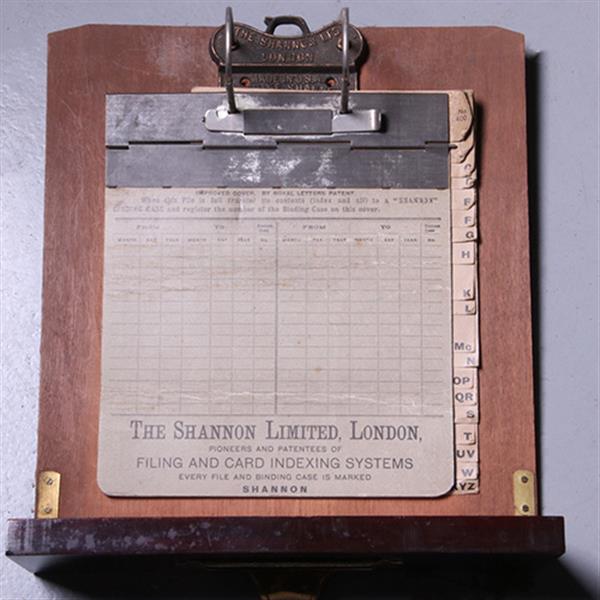 THE SHANNON LTD
LONDON
MADE IN U.S.A.
No.
400
IMPROVED COVER, BY ROYAL LETTERS PATENT.
When this File is full transfer its contents (index and all) to a "SHANNON"
BINDING CASE and register the number of the Binding Case on this cover.
FROM TO FROM TO
MONTH DAY YEAR MONTH DAY YEAR No. MONTH DAY YEAR MONTH DAY YEAR No.
THE SHANNON LIMITED, LONDON,
PIONEERS AND PATENTEES OF
FILING AND CARD INDEXING SYSTEMS
EVERY FILE AND BINDING CASE IS MARKED
SHANNON
F
G
H
K
L
Mc
N
OP
QR
S
T
UV
W
XYZ